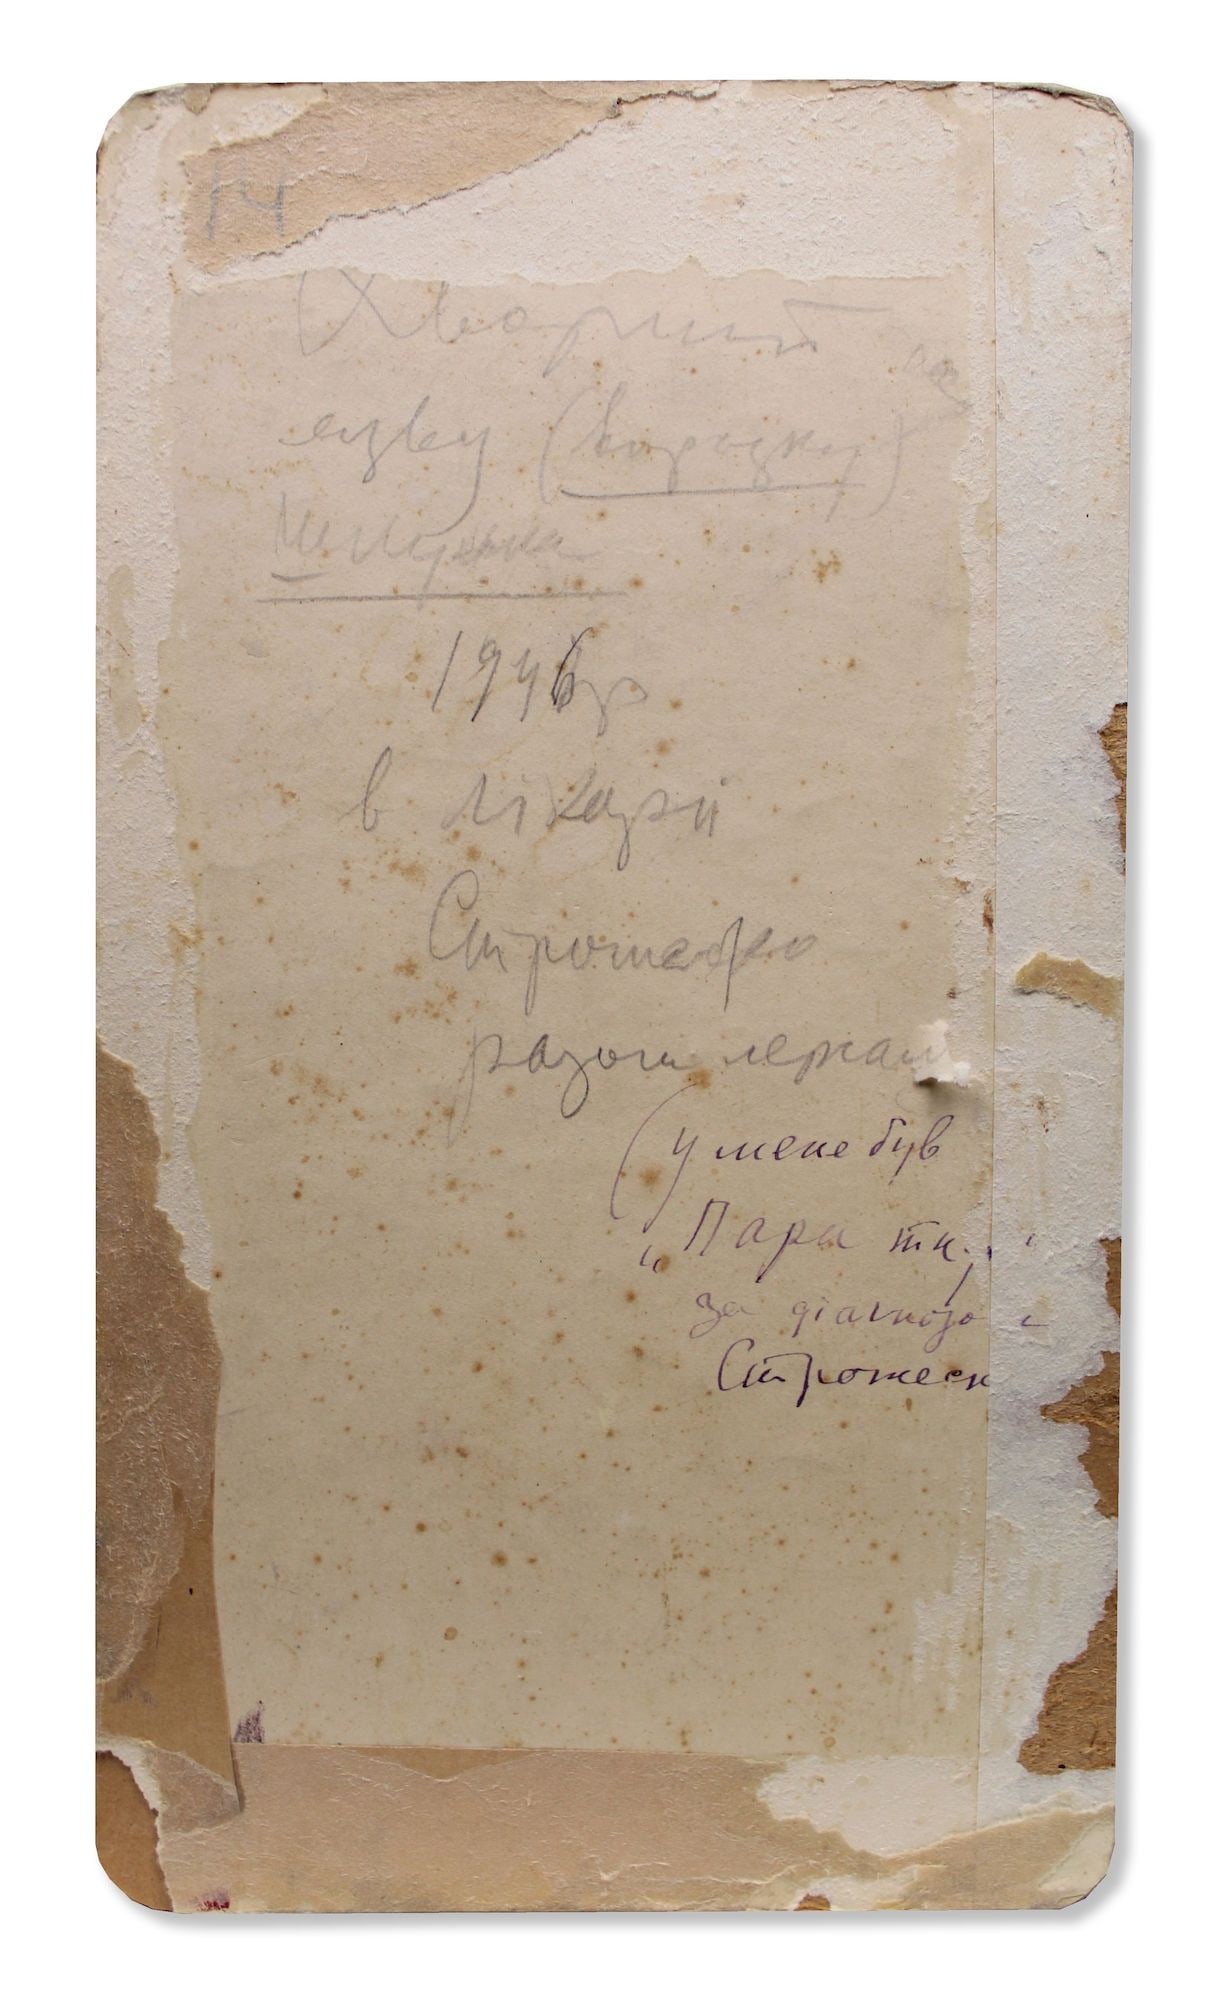 14
Хворий на
язву (виразку)
шлунка
1946 р
в лікарні
Стражеско
разом лежал
(у мене був
"Пара ти
за діагнозо
Стражеск